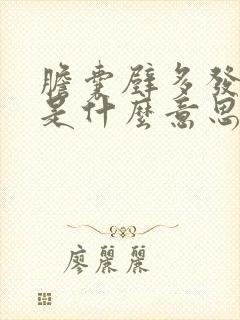 膽囊壁多發
是什麼意思
廖麗麗